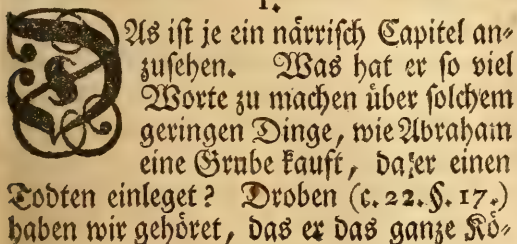 1.
DAs ist je ein närrisch Capitel an⸗
zusehen. Was hat er so viel
Worte zu machen über solchem
geringen Dinge, wie Abraham
eine Grube kauft, da er einen
Todten einleget? Droben (c. 22. §. 17.)
haben wir gehöret, das er das ganze Kö⸗